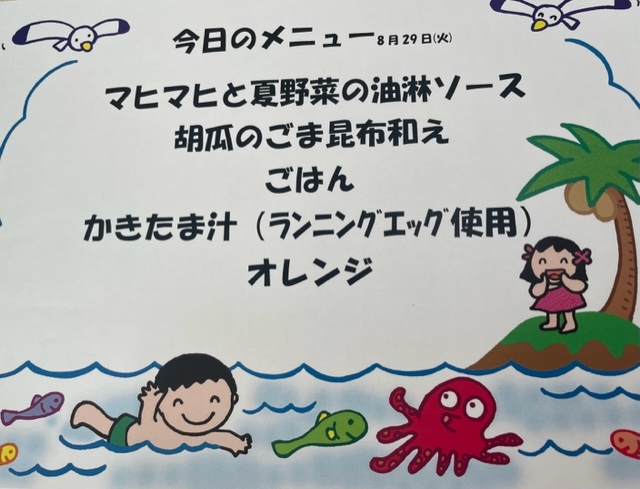 今日のメニュー8月29日(火)
マヒマヒと夏野菜の油淋ソース
胡瓜のごま昆布和え
ごはん
かきたま汁（ランニングエッグ使用）
オレンジ